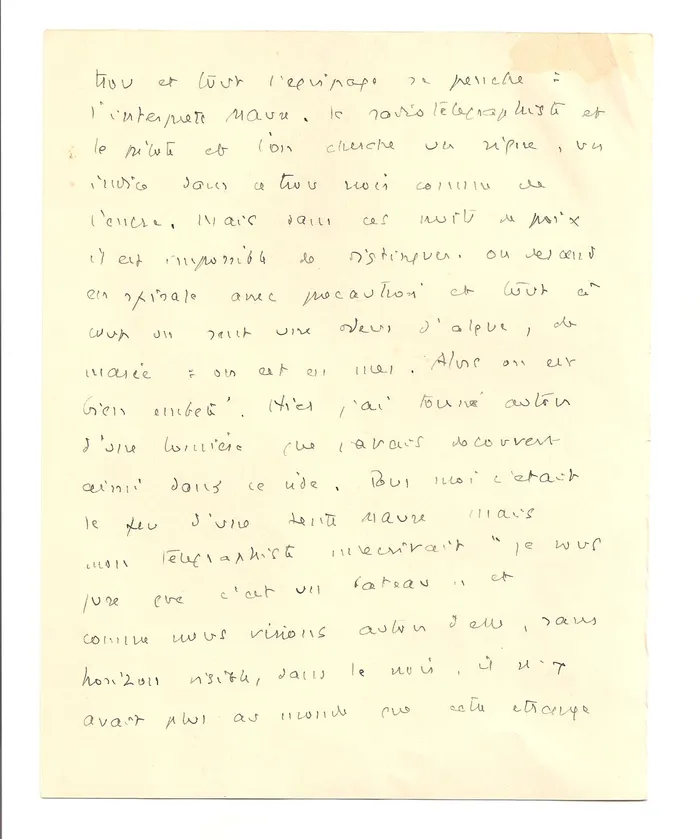 trou et tout l'equipage se penche :
l'interprete Maure, le radiotelegraphiste et
le pilote et l'on cherche un signe, un
indice dans ce trou noir comme de
l'encre. Mais dans ces nuits de poix
il est impossible de distinguer. On descend
en spirale avec precaution et tout à
coup on sent une odeur d'algue, de
marée : on est en mer. Alors on est
bien embeté. Hier j'ai tourné autour
d'une lumière que j'avais decouvert
ainsi dans ce vide. Pour moi c'etait
le feu d'une tente Maure mais
mon telegraphiste m'ecrivait " je vous
jure que c'est un bateau " et
comme nous virions autour d'elle, sans
horizon visible, dans le noir, il n'y
avait plus au monde que cette etrange